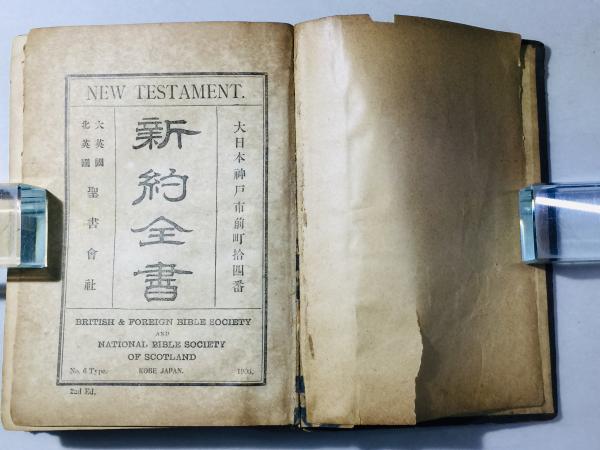 NEW TESTAMENT.
大日本神戸市前町拾四番
新約全書
大英國
北英國
聖書會社
BRITISH & FOREIGN BIBLE SOCIETY
AND
NATIONAL BIBLE SOCIETY
OF SCOTLAND
No. 6 Type. KOBE JAPAN.
2nd Ed.